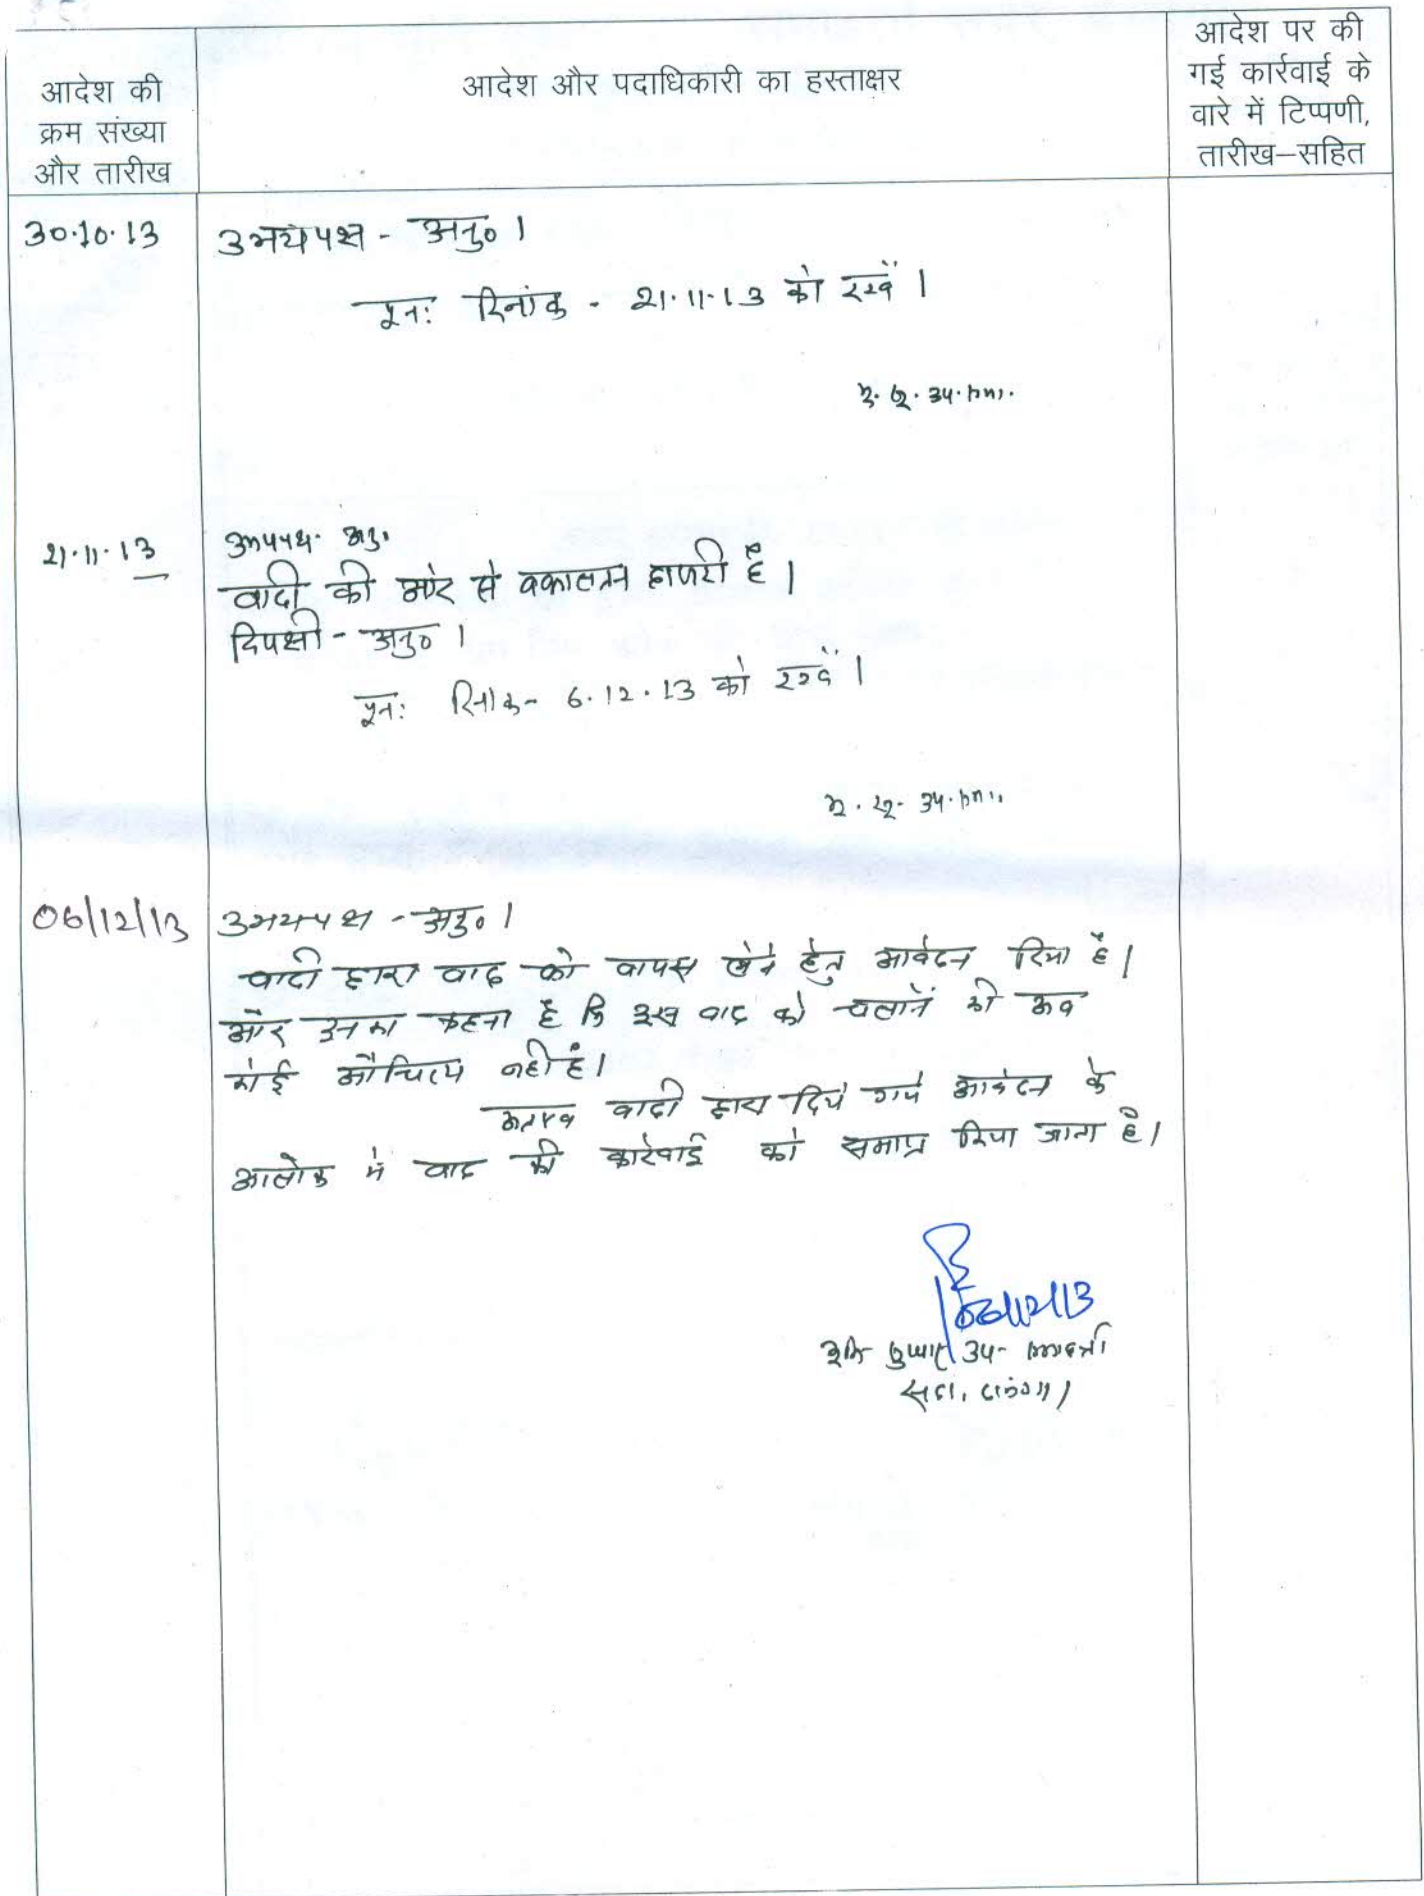 आदेश की
क्रम संख्या
और तारीख
आदेश और पदाधिकारी का हस्ताक्षर
आदेश पर की
गई कार्रवाई के
वारे में टिप्पणी,
तारीख–सहित
30.10.13
उभयपक्ष - अनु० ।
पुन: दिनांक - 21.11.13 को रखें ।
भू. सु. उप.
21.11.13
उभयपक्ष. अनु.
वादी की ओर से वकालतन हाजरी है ।
विपक्षी - अनु० ।
पुन: दिनांक- 6.12.13 को रखें ।
भू. सु. उप.
06/12/13
उभयपक्ष - अनु० ।
वादी द्वारा वाद को वापस लेने हेतु आवेदन दिया है ।
और उनका कहना है कि इस वाद को चलाने की अब
कोई औचित्य नहीं है ।
अतएव वादी द्वारा दिये गये आवेदन के
आलोक में वाद की कारवाई को समाप्त किया जाता है ।
06/12/13
भूमि सुधार उप-
सदर, दरभंगा ।